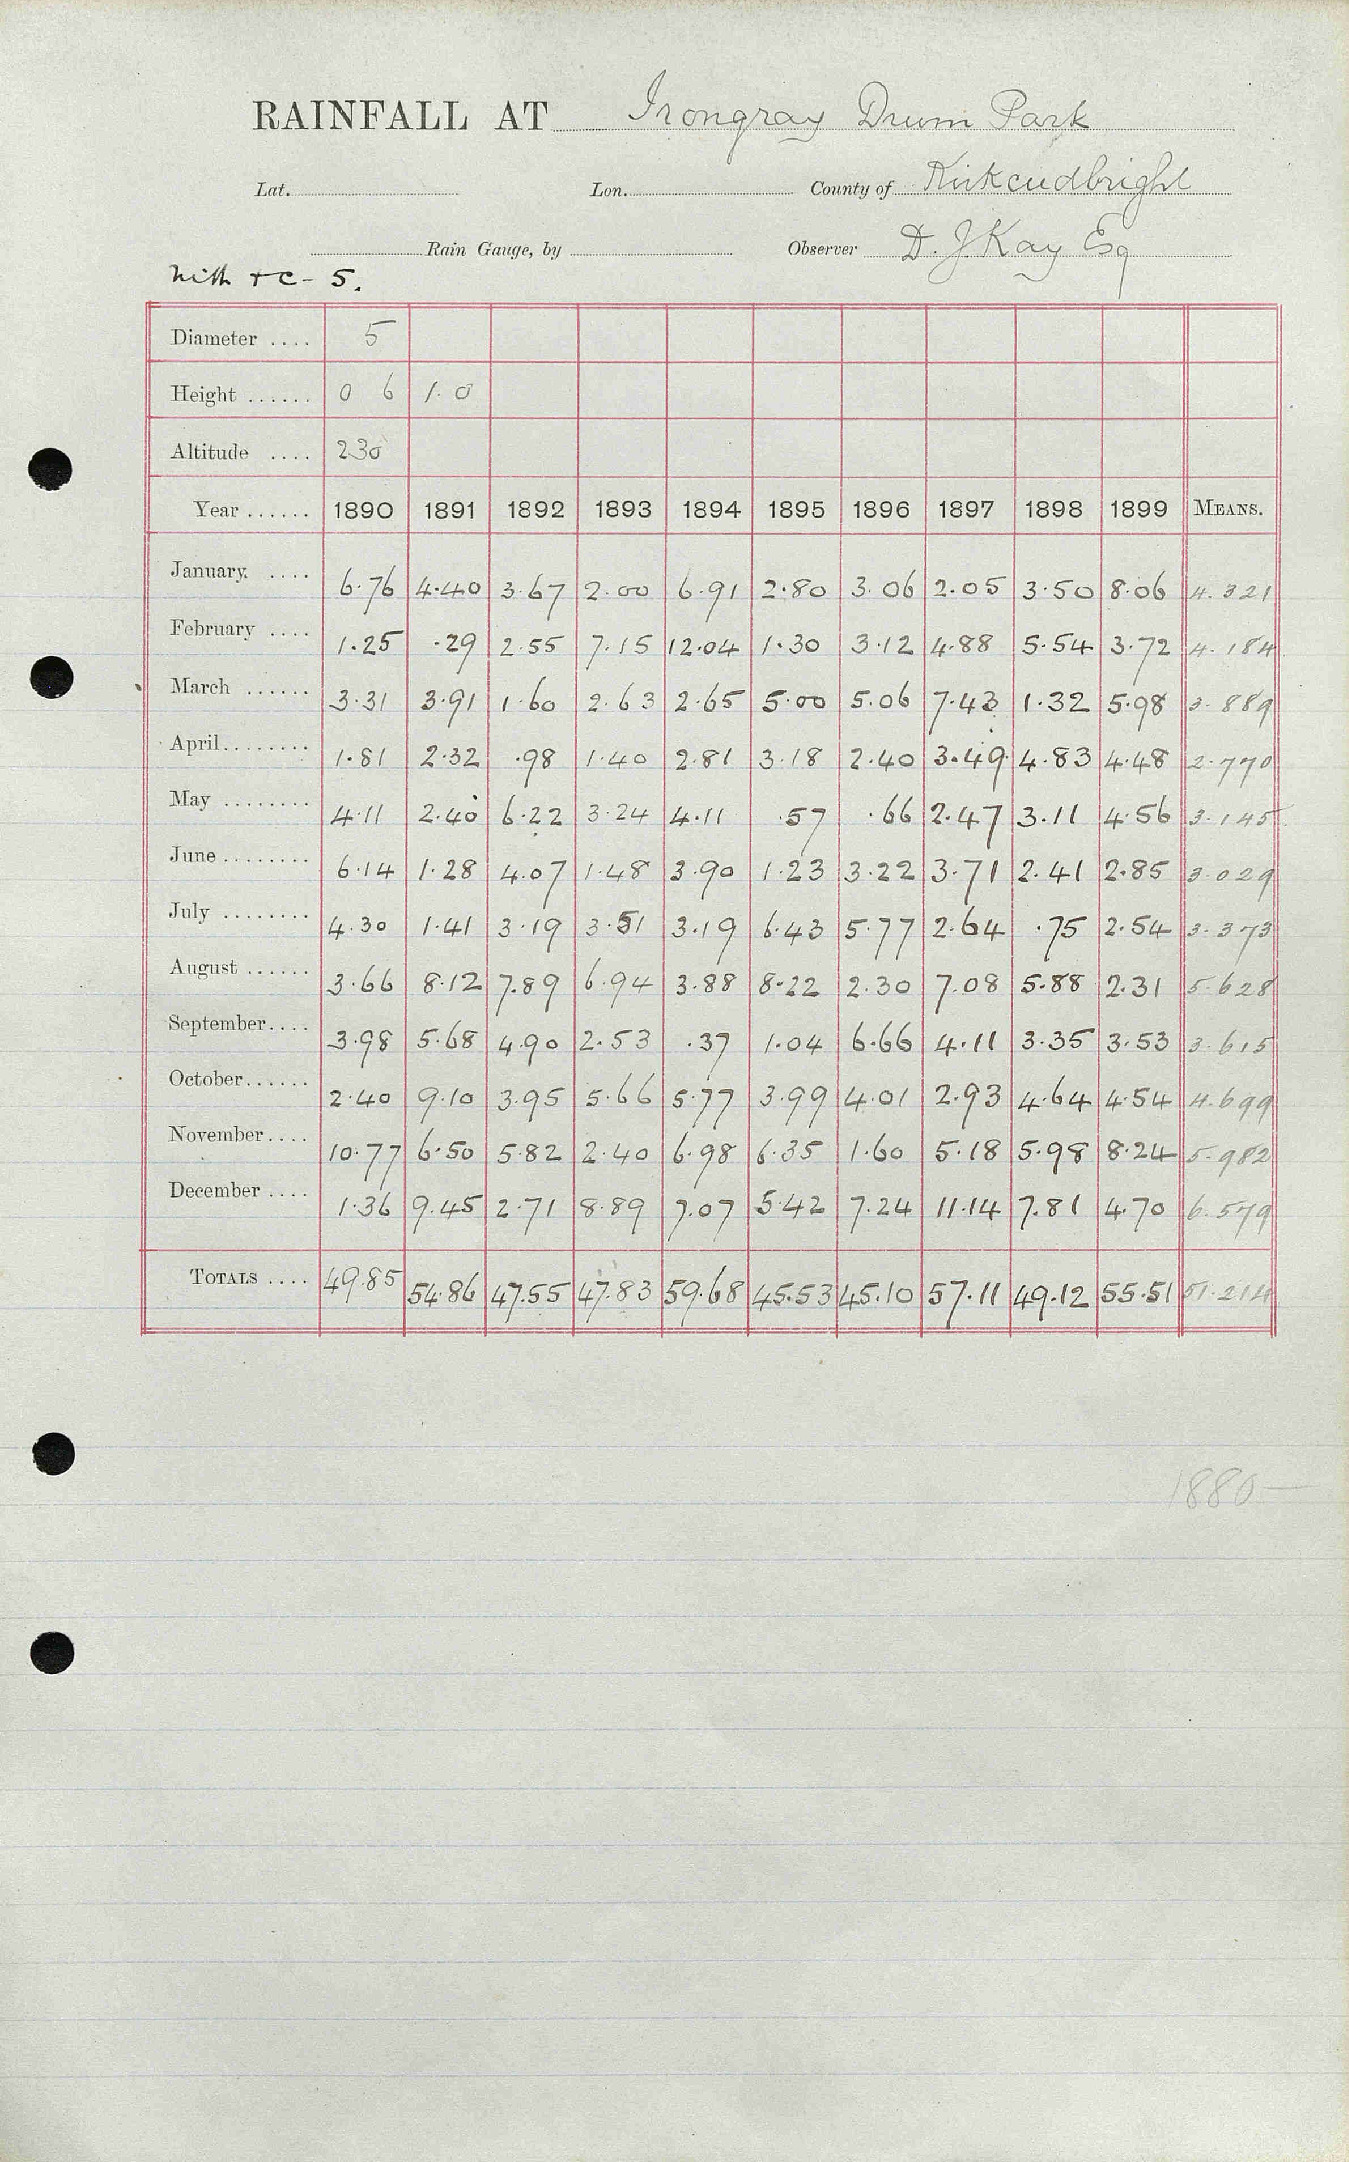 RAINFALL AT Irongray Drum Park
Lat. Lon. County of Kirkcudbright
Rain Gauge, by Observer D. J Kay Esq
Nith + C - 5.
Diameter .... 5
Height ...... 0 6 1.0
Altitude .... 230
Year ...... 1890 1891 1892 1893 1894 1895 1896 1897 1898 1899 MEANS.
January .... 6.76 4.40 3.67 2.00 6.91 2.80 3.06 2.05 3.50 8.06 4.321
February .... 1.25 .29 2.55 7.15 12.04 1.30 3.12 4.88 5.54 3.72 4.184
March ...... 3.31 3.91 1.60 2.63 2.65 5.00 5.06 7.43 1.32 5.98 3.889
April ........ 1.81 2.32 .98 1.40 2.81 3.18 2.40 3.49 4.83 4.48 2.770
May ........ 4.11 2.40 6.22 3.24 4.11 .57 .66 2.47 3.11 4.56 3.145
June ........ 6.14 1.28 4.07 1.48 3.90 1.23 3.22 3.71 2.41 2.85 3.029
July ........ 4.30 1.41 3.19 3.51 3.19 6.43 5.77 2.64 .75 2.54 3.373
August ...... 3.66 8.12 7.89 6.94 3.88 8.22 2.30 7.08 5.88 2.31 5.628
September .... 3.98 5.68 4.90 2.53 .37 1.04 6.66 4.11 3.35 3.53 3.615
October ...... 2.40 9.10 3.95 5.66 5.77 3.99 4.01 2.93 4.64 4.54 4.699
November .... 10.77 6.50 5.82 2.40 6.98 6.35 1.60 5.18 5.98 8.24 5.982
December .... 1.36 9.45 2.71 8.89 7.07 5.42 7.24 11.14 7.81 4.70 6.579
TOTALS .... 49.85 54.86 47.55 47.83 59.68 45.53 45.10 57.11 49.12 55.51 51.214
1880 —